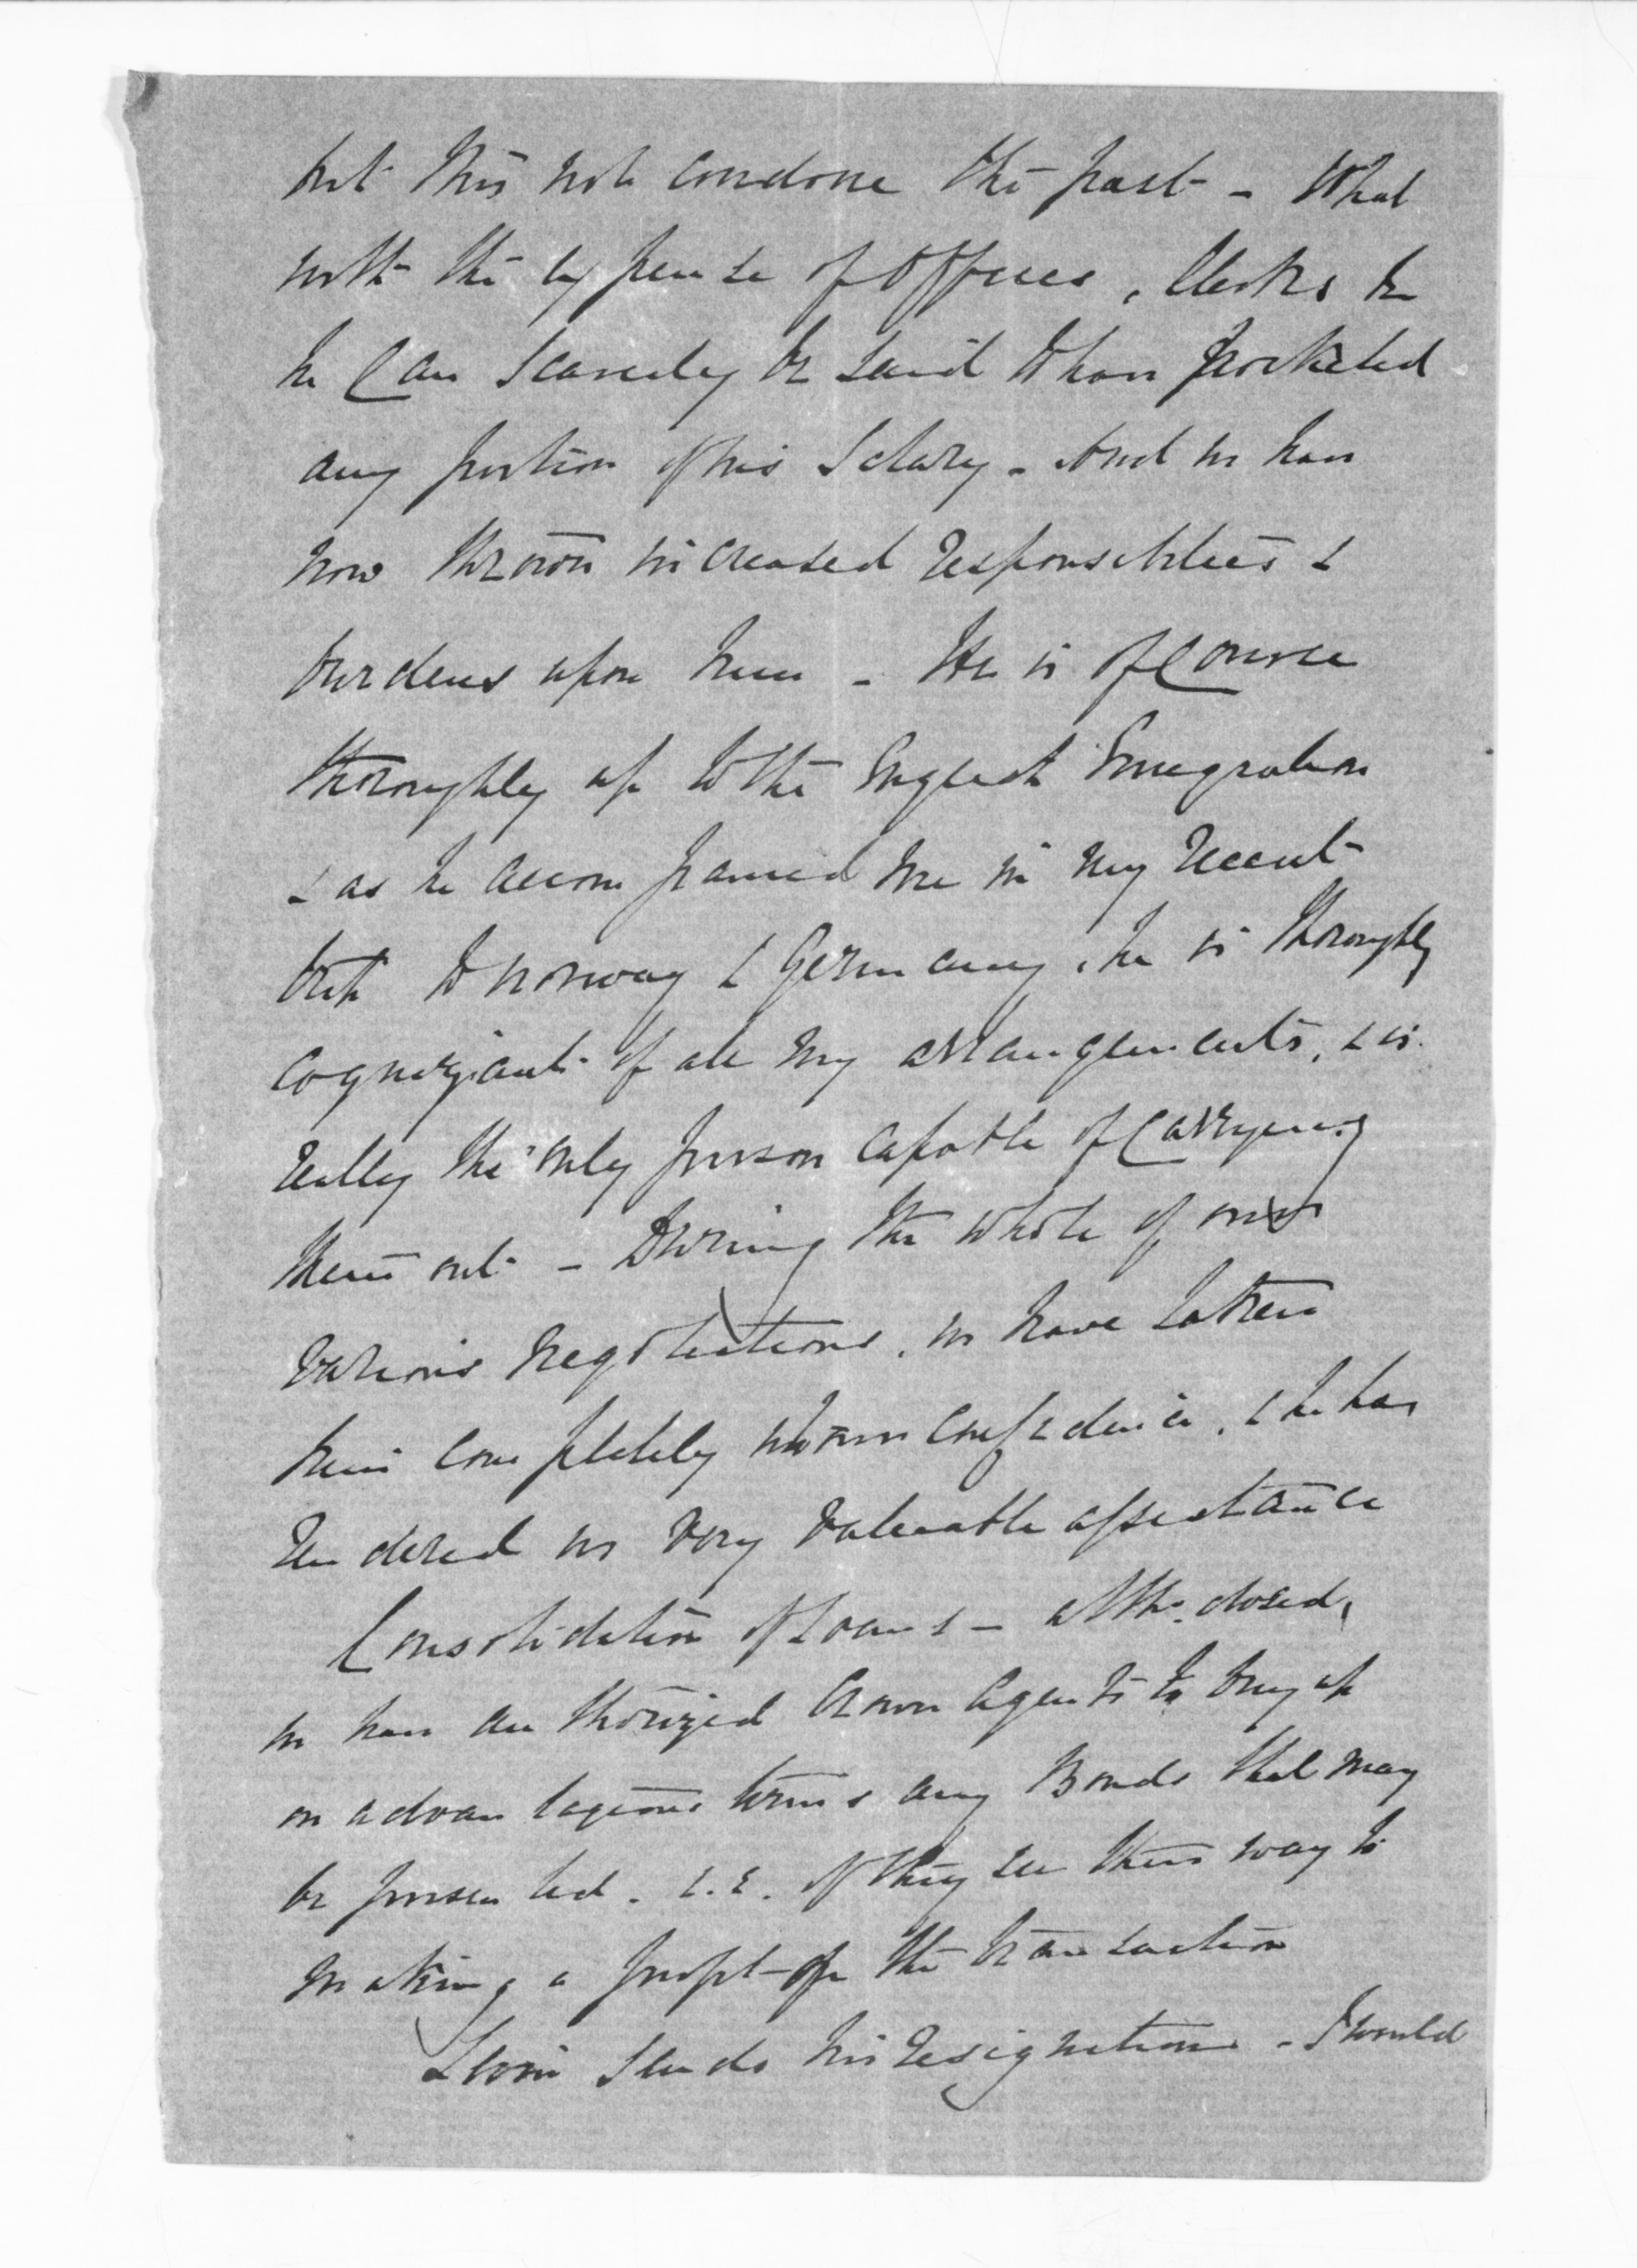 but this not condone the past - What
with the expense of offices, Clerks &c
he can scarcely be said to have pocketed
any portion of his Salary - And we have
now thrown increased responsibilities &
burdens upon him - He is of Course
thoroughly up to the English Emigration
& as he accompanied me in my recent
trip to Norway & Germany, he is thoroughly
cognizant of all my arrangements, & is
really the only person capable of carrying
them out - During the whole of our
various negotiations, we have taken
him completely into our confidence, & he has
rendered us very valuable assistance
Consolidation of Loans - altho' closed,
we have authorized Crown Agents to buy up
on advantageous terms any Bonds that may
be presented. i.e. if they see their way to
making a profit of the transaction
sends his resignation - I would